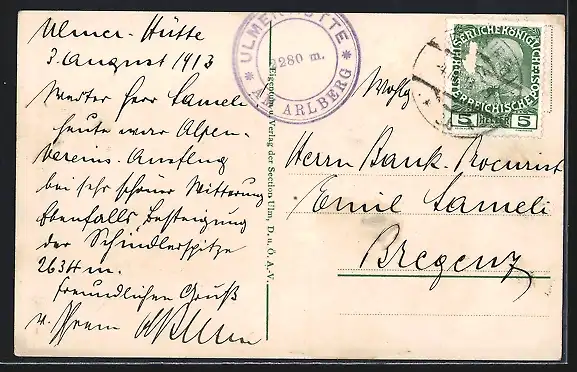 Ulmer-Hütte
3. August 1913
Werter Herr Lameli
heute war Alpen-
Vereins-Ausflug
bei sehr schöner Witterung
Ebenfalls Besteigung
der Schindlerspitze
2634 m.
Freundlichen Gruß
v. Ihrem
ULMER HÜTTE
2280 m.
AM ARLBERG
Eigentum u. Verlag der Section Ulm, D. u. Ö. A.-V.
KAISERLICHE KÖNIGLICHE
ÖSTERREICHISCHE POST
5 HELLER 5
Wohlg.
Herrn Bank-Procurist
Emil Lameli
Bregenz